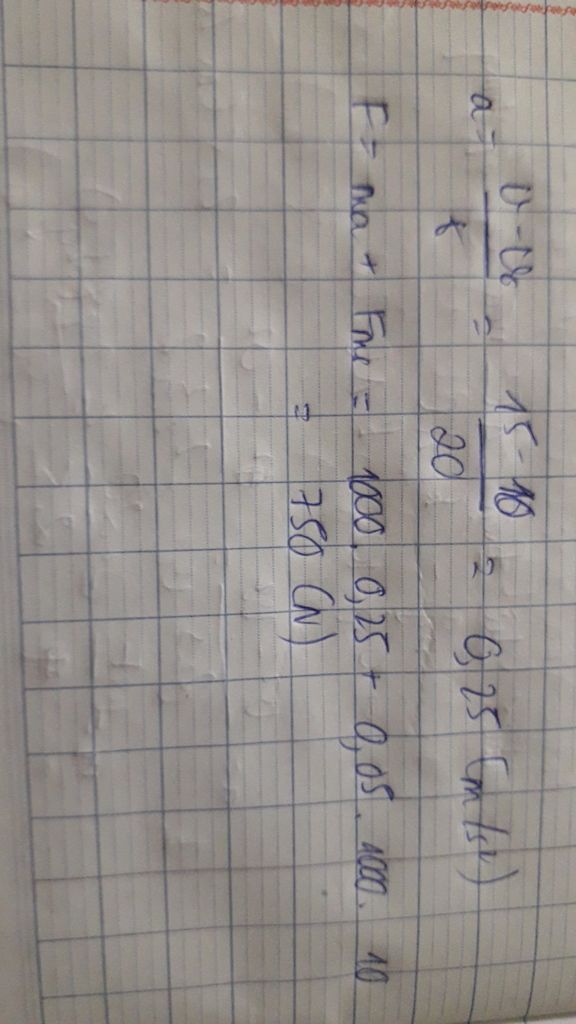 a = (v - v₀)/t = (15 - 10)/20 = 0,25 (m/s²)
F = ma + Fms = 1000. 0,25 + 0,05. 1000. 10
= 750 (N)